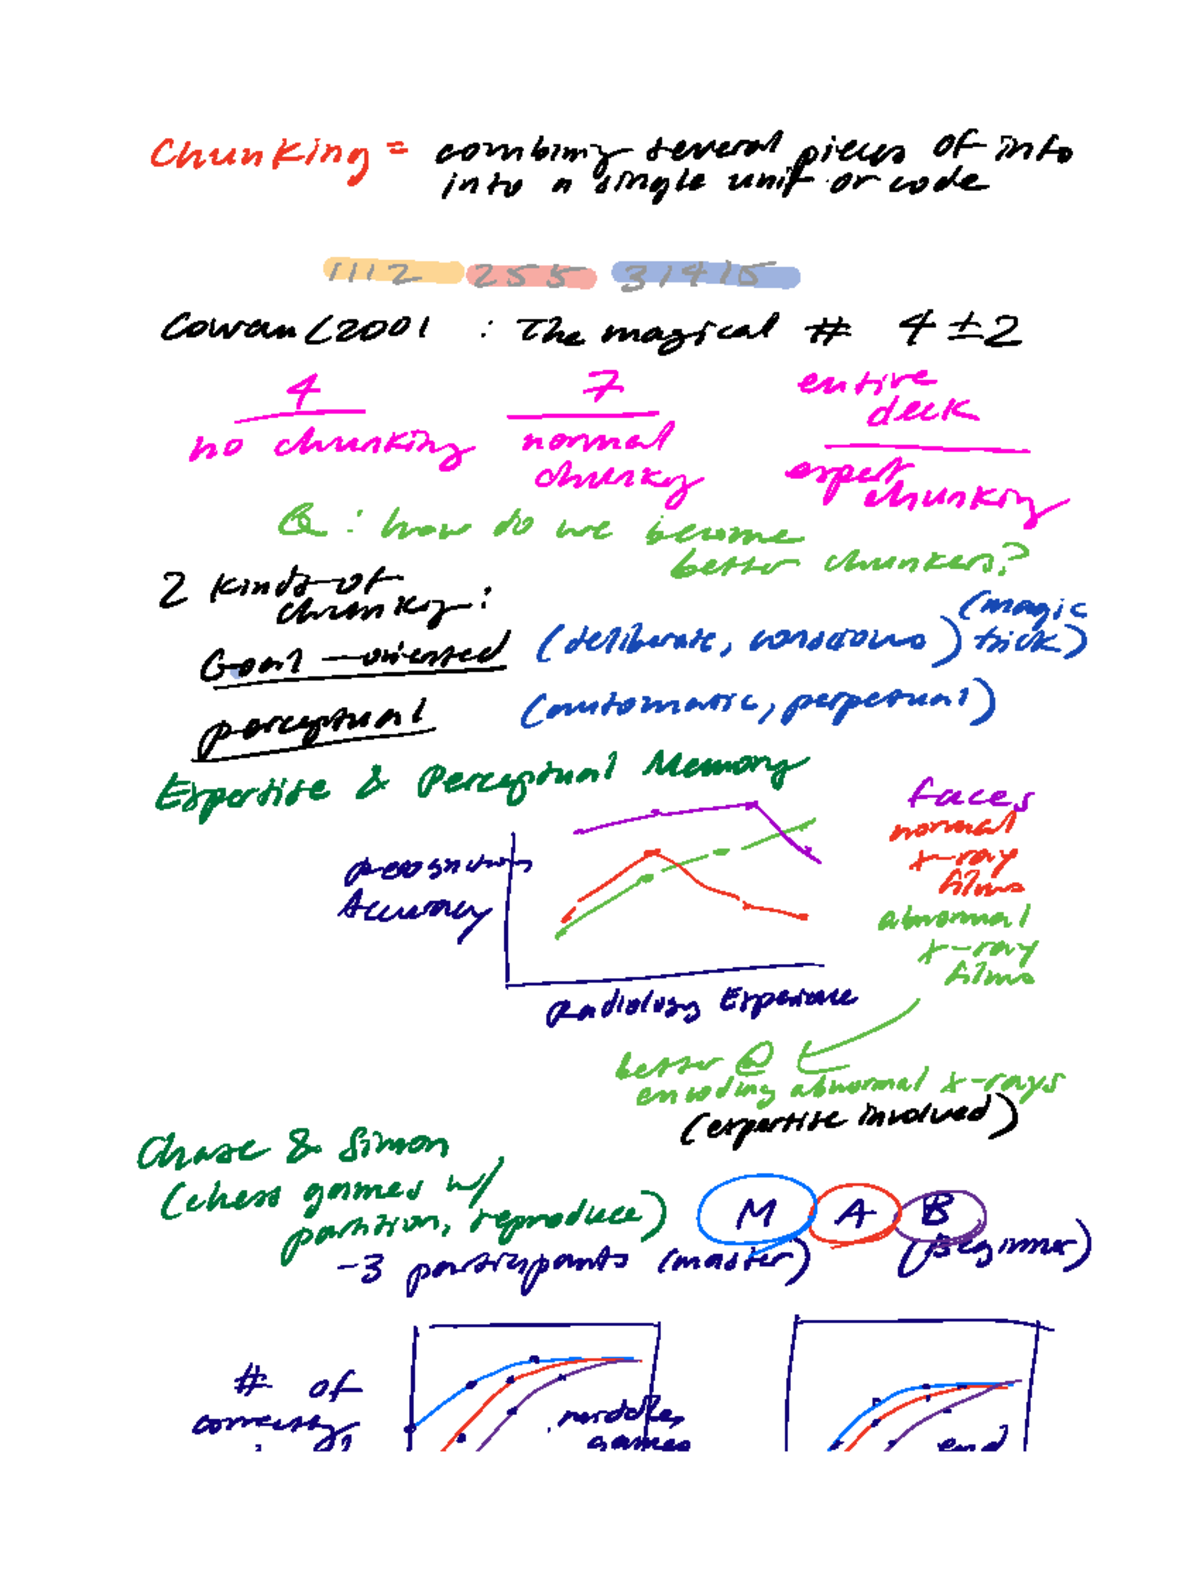 Chunking = combining several pieces of info
into a single unit or code
1112 255 31415
Cowan (2001 : The magical # 4 ± 2
4 7 entire
deck
no chunking normal
chunking expert
chunking
Q: how do we become
better chunkers?
2 kinds of
chunking:
Goal-oriented (deliberate, conscious) (magic
trick)
perceptual (automatic, perpetual)
Expertise & Perceptual Memory
Recognition
Accuracy
faces
normal
x-ray
films
abnormal
x-ray
films
Radiology Experience
better @
encoding abnormal x-rays
(expertise involved)
Chase & Simon
(chess games w/
partition, reproduce)
M A B
-3 participants (master) (Beginner)
# of
middle
games
end